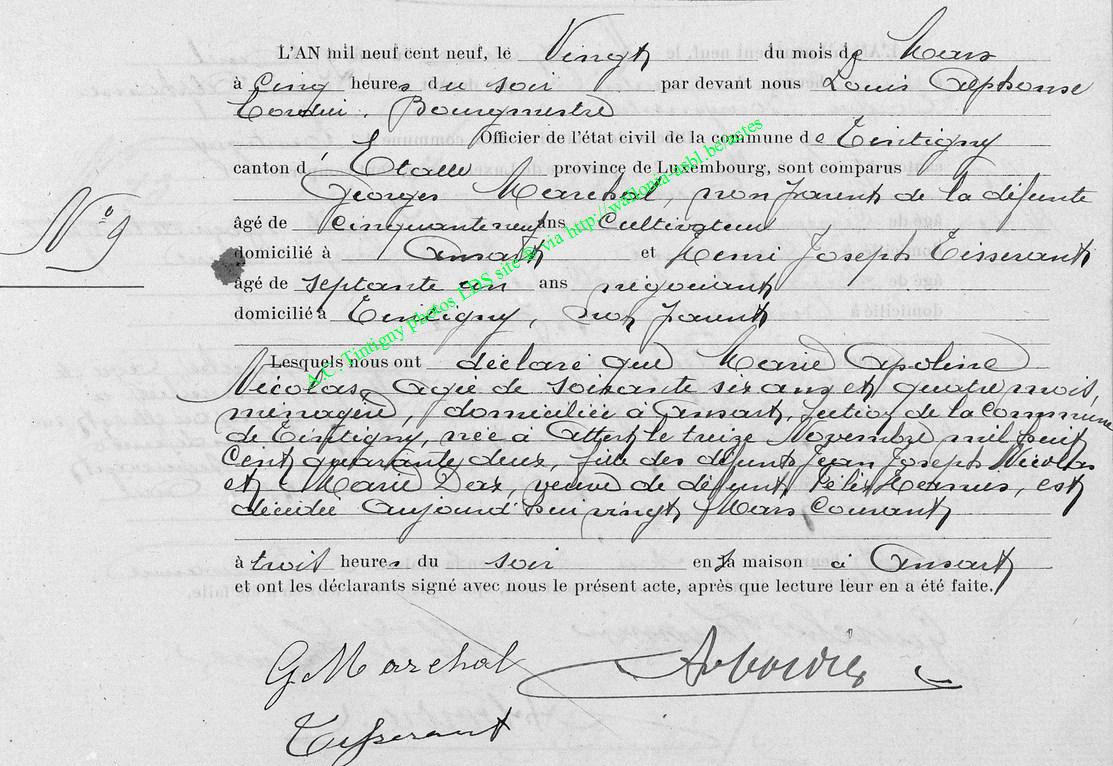 L'AN mil neuf cent neuf, le Vingt du mois de Mars
à Cinq heures du soir par devant nous Louis Alphonse
Bourgmestre
Officier de l'état civil de la commune de Tintigny
canton d' Etalle province de Luxembourg, sont comparus
Georges Marechal, non parent de la défunte
Nº 9
âgé de Cinquante neuf ans Cultivateur
domicilié à Ansart et Henri Joseph Tisserant
âgé de septante un ans négociant
domicilié à Tintigny, non parent
Lesquels nous ont déclaré que Marie Apoline
Nicolas, agée de soixante six ans et quatre mois,
ménagère, domiciliée à Ansart, section de la Commune
de Tintigny, née à Attert le treize Novembre mil huit
Cent quarante deux, fille des défunts Jean Joseph Nicolas
et Marie, veuve de défunt, est
décédée aujourd'hui vingt Mars Courant
à trois heures du soir en sa maison à Ansart
et ont les déclarants signé avec nous le présent acte, après que lecture leur en a été faite.
G Marechal
Tisserant
A.C. Tintigny photos LDS site © via http://wallonia-asbl.be/actes